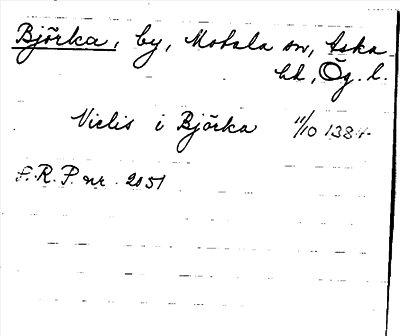 Björka, by, Motala sn, Aska
hd, Ög. l.
Niclis i Björka 11/10 1384
S. R. P. nr. 2051